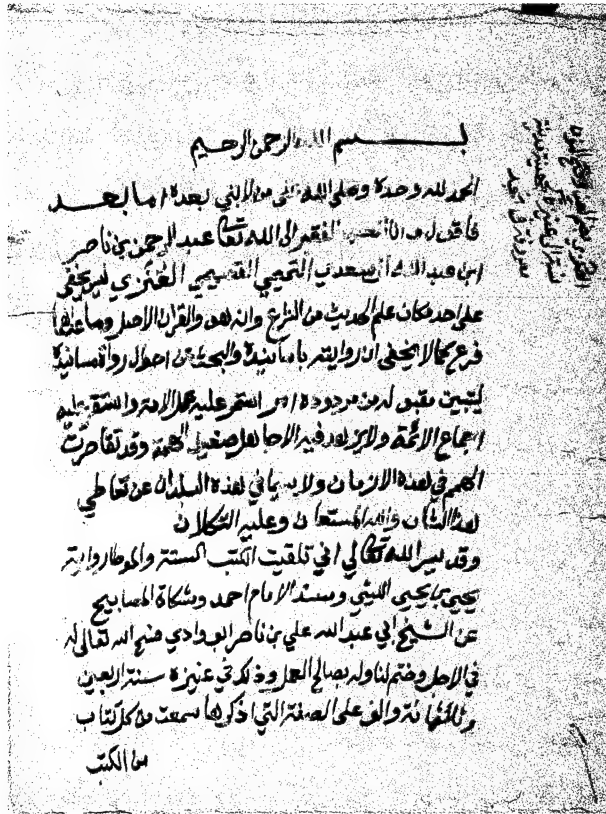 بسم الله الرحمن الرحيم
الحمد لله وحده وصلى الله على من لا نبي بعده اما بعد
فاقول وانا الفقير الى الله تعالى عبد الرحمن بن ناصر
ابن عبد الله ال سعدي التميمي القصيمي العنزي ليس يخفى
على احد مكان علم الحديث من الشرع وانه هو والقران الاصل وما عداها
فرع كما لا يخفى ان روايته باسانيده والبحث عن احوال رواة مسانيده
ليتبين مقبوله من مردوده امر استمر عليه عمل الامة واستقر عليه
اجماع الائمة ولا يزهد فيه الا جاهل ضعيف الهمة وقد تقاصرت
الهمم في هذه الازمان ولا سيما في هذه البلدان عن تعاطي
هذا الشان والله المستعان وعليه التكلان
وقد يسر الله تعالى اني تلقيت الكتب الستة والموطا رواية
يحيى بن يحيى الليثي ومسند الامام احمد ومشكاة المصابيح
عن الشيخ ابي عبد الله علي بن ناصر ابو وادي فسح الله تعالى له
في الاجل وختم لنا وله بصالح العمل وذلك في عنيزة سنة اربعين
وثلثمائة والف على الصفة التي اذكرها سمعت من كل كتاب
من الكتب